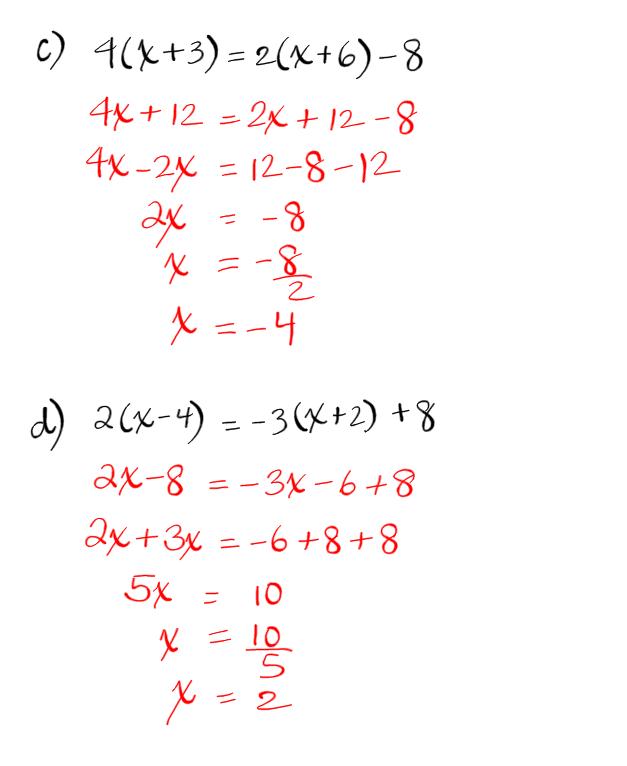 c) 4(x+3) = 2(x+6) - 8
4x + 12 = 2x + 12 - 8
4x - 2x = 12 - 8 - 12
2x = -8
x = -8/2
x = -4
d) 2(x-4) = -3(x+2) + 8
2x - 8 = -3x - 6 + 8
2x + 3x = -6 + 8 + 8
5x = 10
x = 10/5
x = 2